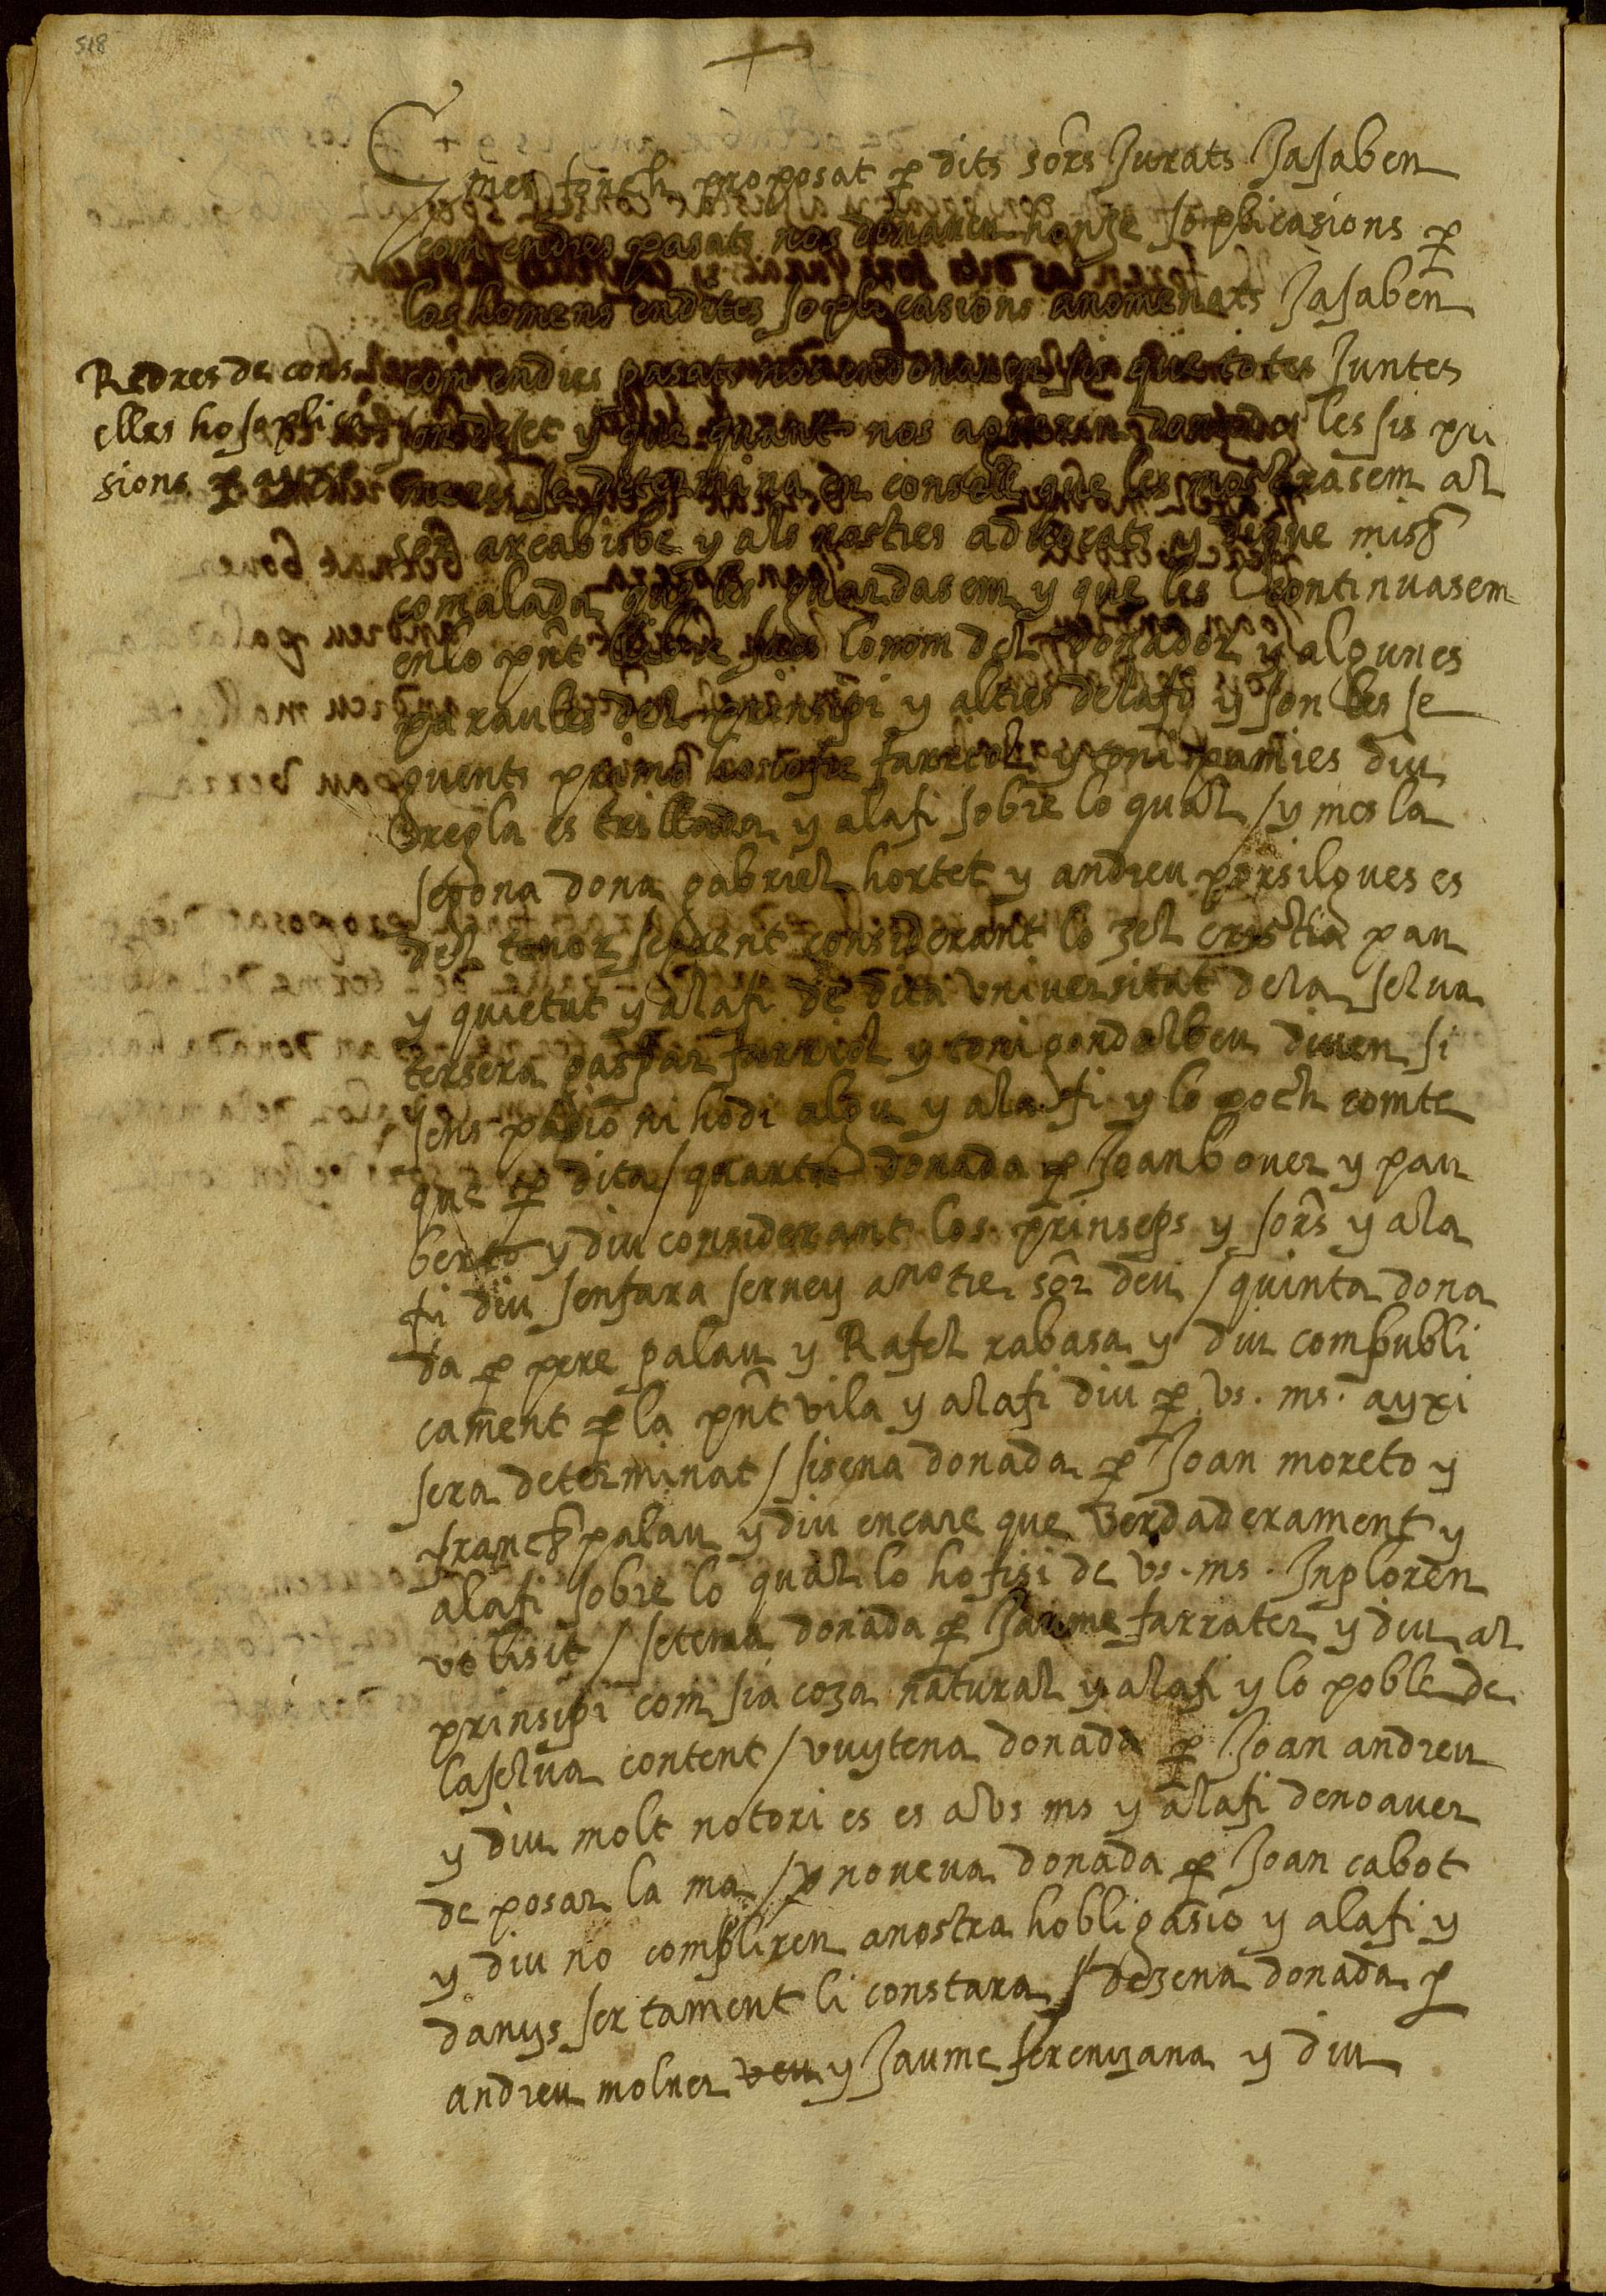 518
E mes fonch proposat p dits sors Jurats Ja saben
com en dies pasats nos donaren honze soplicasions p
los homens en dites soplicasions anomenats Ja saben
com en dies pasats nos en donaren sis que totes Juntes
son deset y que quant nos agueren donades les sis pri
meres se determina en consell que les mostrasem al
sor arcabisbe y als nostres advocats y digue misr
comalada que les guardasem y que les continuasem
en lo pnt llibre lo nom del donador y algunes
paraules del prinsipi y altres de la fi y son les se
guents primo farreol y toni pamies diu
regla es trillada y a la fi sobre lo qual / y mes la
segona dona gabriel hortet y andreu porsilgues es
del tenor seguent considerant lo zel cristia pau
y quietut y a la fi de dita universitat de la selva
tersera gaspar farriol y toni gondalbeu diuen si
sens pasio ni hodi algu y a la fi y lo poch comte
que p dita / quarta donada p Joan bover y pau
berto y diu considerant los prinseps y sors y a la
fi diu sen fara servey a notre sor deu / quinta dona
da p pere palau y Rafel rabasa y diu com publi
cament p la pnt vila y a la fi diu p vs. ms. ayxi
sera determinat / sisena donada p Joan moreto y
franch palau y diu encare que verdaderament y
a la fi sobre lo qual lo hofisi de vs. ms. Inploren
ut lisit / setena donada p Jaume farrater y diu al
prinsipi com sia coza natural y a la fi y lo poble de
la selva content / vuytena donada p Joan andreu
y diu molt notori es es a vs ms y a la fi de no aver
de posar la ma / novena donada p Joan cabot
y diu no compliren a nostra hobligasio y a la fi y
danys sertament li constara / dezena donada p
andreu molner y Jaume ferenyana y diu
Redres de cons
elles ho soplica
sions p